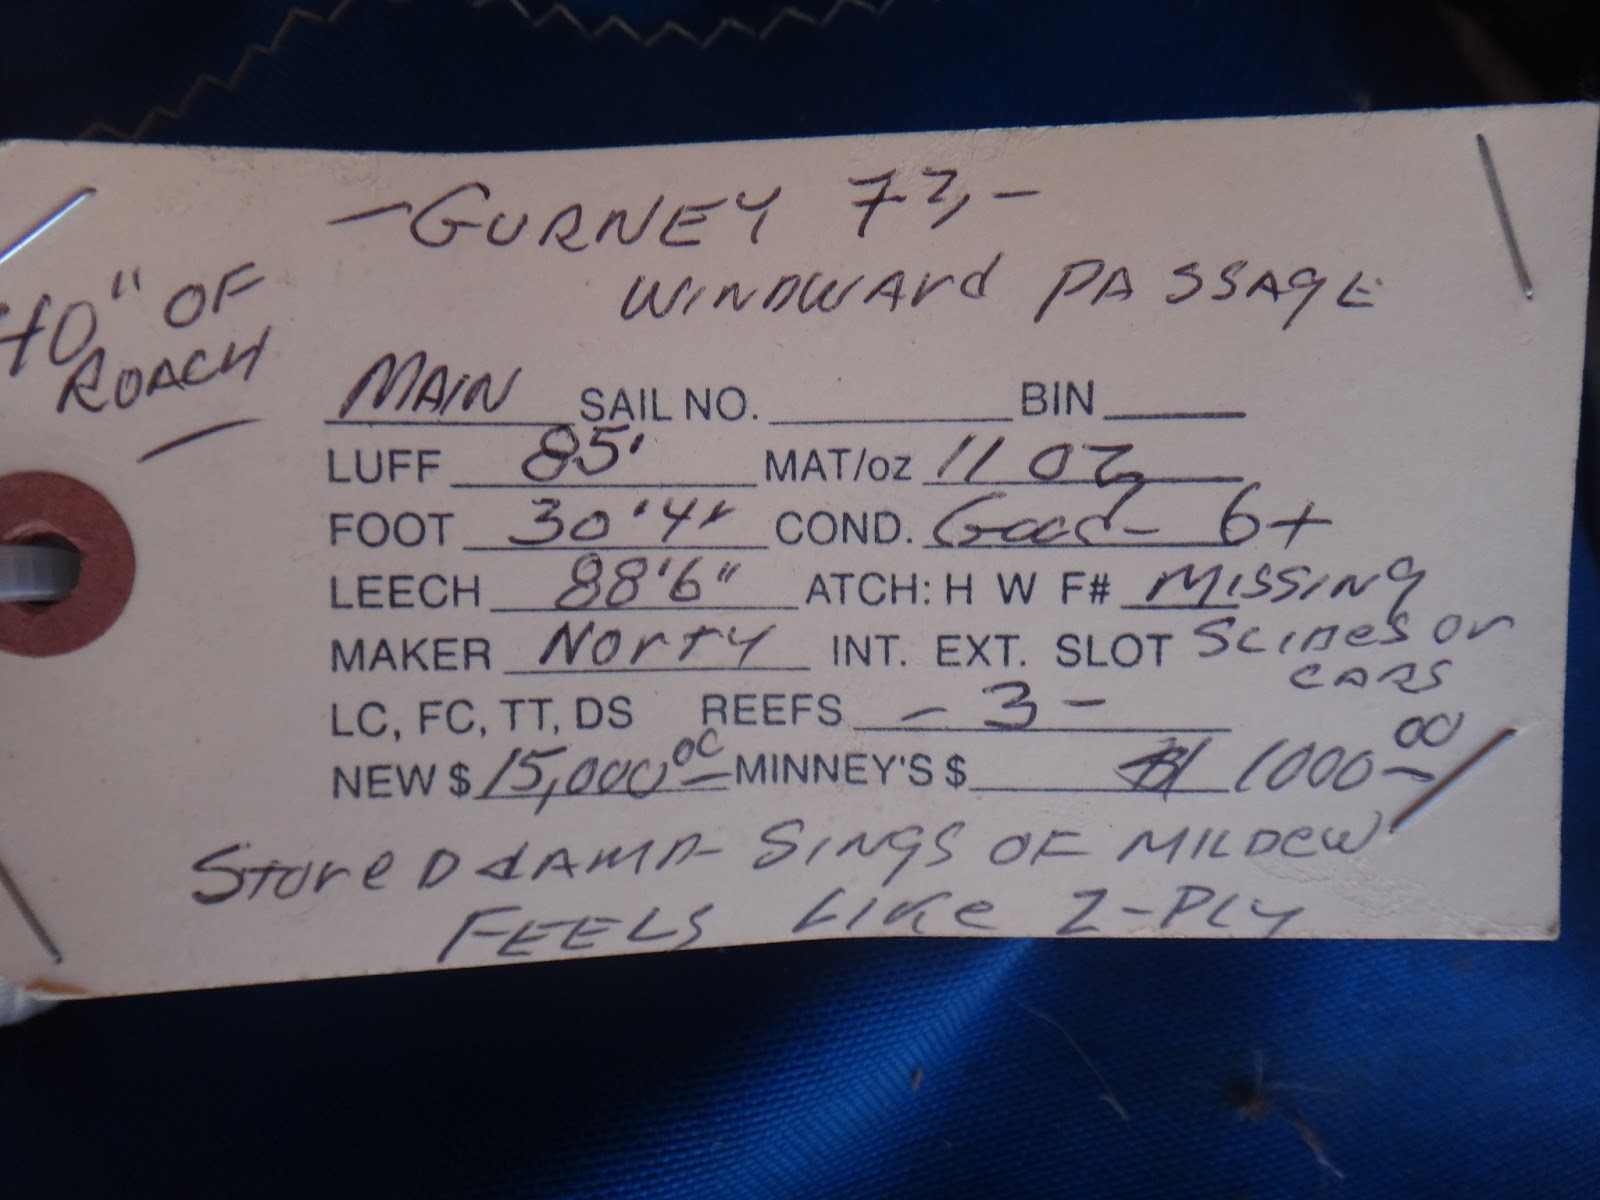 -GURNEY 73,-
WINDWARD PASSAGE
40" OF
ROACH
MAIN SAIL NO. BIN
LUFF 85' MAT/oz 11 OZ
FOOT 30'4" COND. Good- 6+
LEECH 88'6" ATCH: H W F# MISSING
MAKER NORTH INT. EXT. SLOT SLIDES OR
CARS
LC, FC, TT, DS REEFS -3-
NEW $ 15,000.00 MINNEY'S $ 1000.00
STORED dAMP- SINGS OF MILDEW
FEELS LIKE 2-PLY